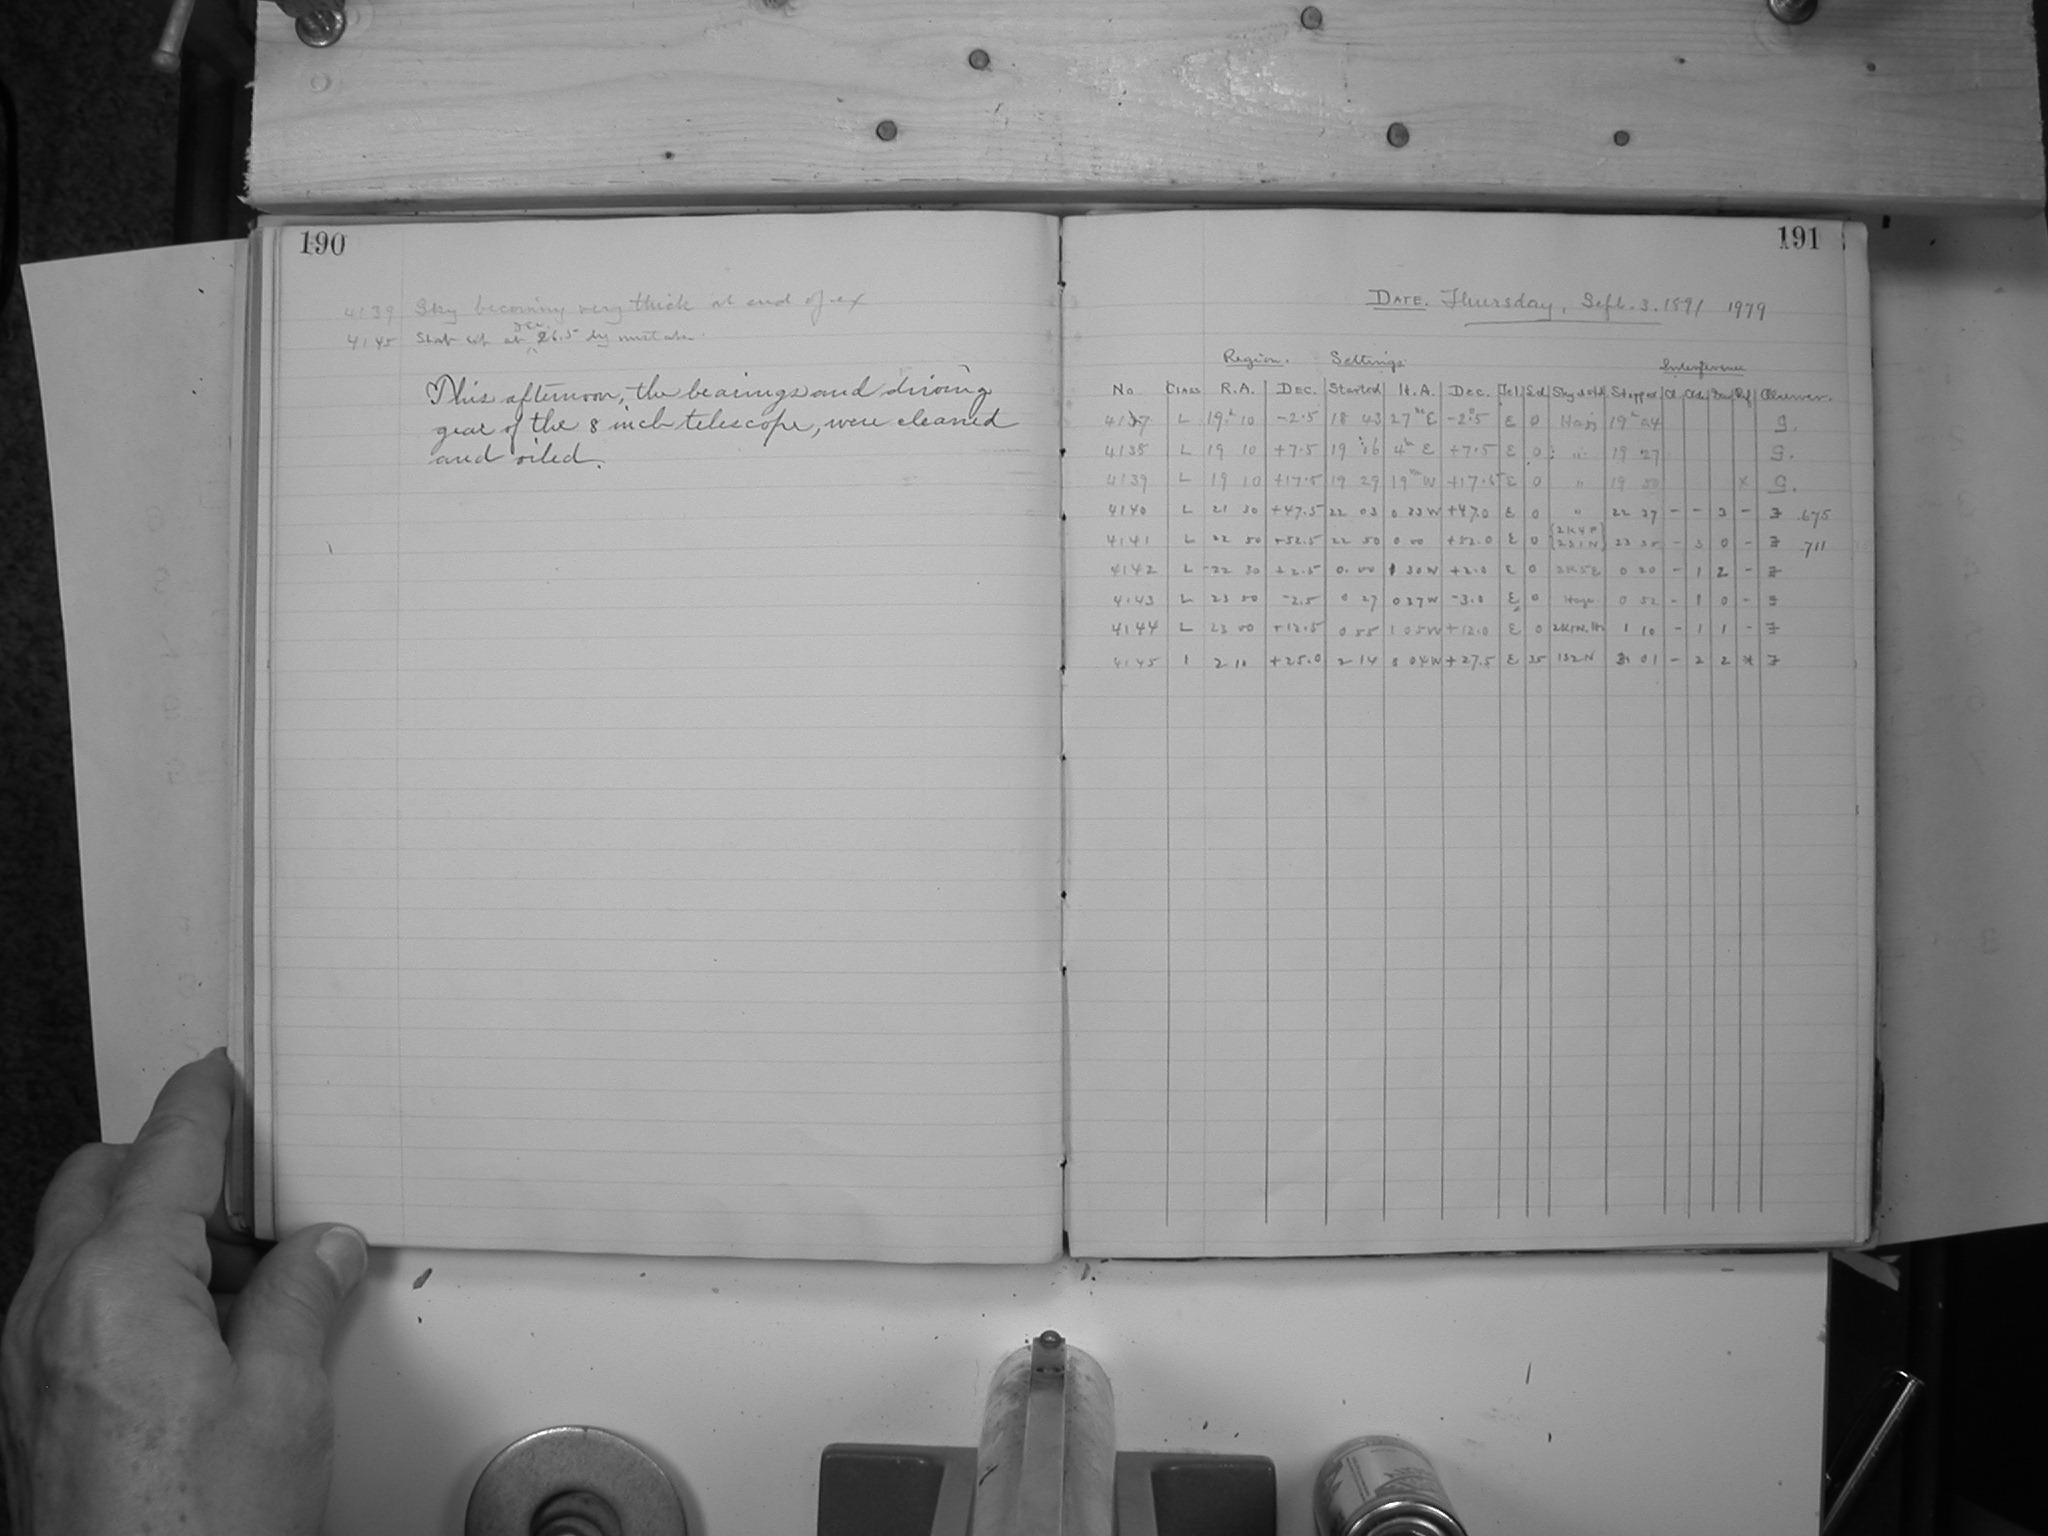 190
4139 Sky becoming very thick at end of ex
Dec.
4145 Shut at 26.5 by mistake.
This afternoon, the bearings and driving
gear of the 8 inch telescope, were cleaned
and oiled.
191
DATE. Thursday, Sept. 3. 1891 1979
Region. Settings. Interference
No CLASS R.A. DEC. Started H.A. DEC. Tel Sd Stopped Cl Observer.
4137 L 19h 10 -2.5 18 43 27m E -2.5 E 0 Hazy 19h 04 G.
4138 L 19 10 +7.5 19 16 4m E +7.5 E 0 " 19 27 G.
4139 L 19 10 +17.5 19 29 19m W +17.5 E 0 " 19 50 x G.
4140 L 21 30 +47.5 22 03 0 33W +47.0 E 0 " 22 37 - - 3 - Z .675
4141 L 22 50 +52.5 22 50 0 00 +52.0 E 0 23 35 - 3 0 - Z .711
4142 L 22 30 +2.5 0 00 1 30W +2.0 E 0 2K5E 0 20 - 1 2 - Z
4143 L 23 50 -2.5 0 27 0 37W -3.0 E 0 Haze 0 52 - 1 0 - Z
4144 L 23 00 +12.5 0 55 1 05W +12.0 E 0 1 10 - 1 1 - Z
4145 1 2 10 +25.0 2 14 0 04W +27.5 E 35 1S2N 3 01 - 2 2 * Z